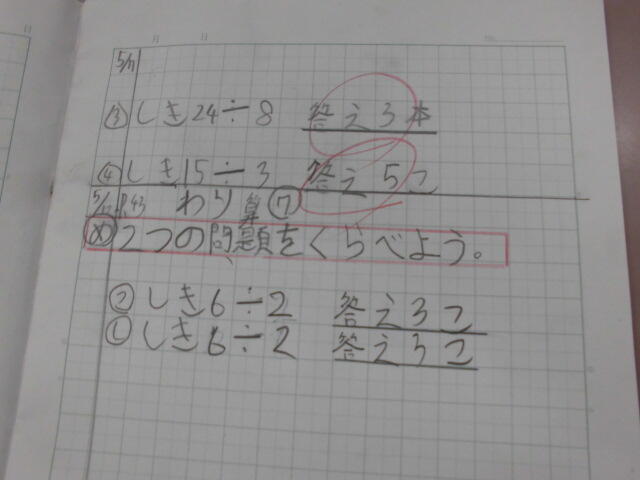 5/11
③しき24÷8 答え3本
④しき15÷3 答え5こ
5/12 P.43 わり算⑦
め 2つの問題をくらべよう。
②しき6÷2 答え3こ
①しき6÷2 答え3こ